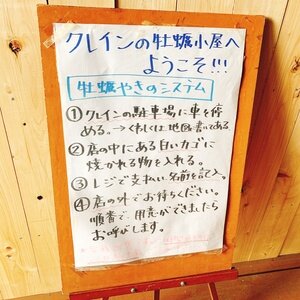 クレインの牡蠣小屋へ
ようこそ!!!
牡蠣やきのシステム
①クレインの駐車場に車を停
める。→くわしくは地図に書いてある。
②店の中にある白いカゴに
焼かれる物を入れる。
③レジで支払い、名前を記入。
④店の外でお待ちください。
順番で用意ができましたら
お呼びします。